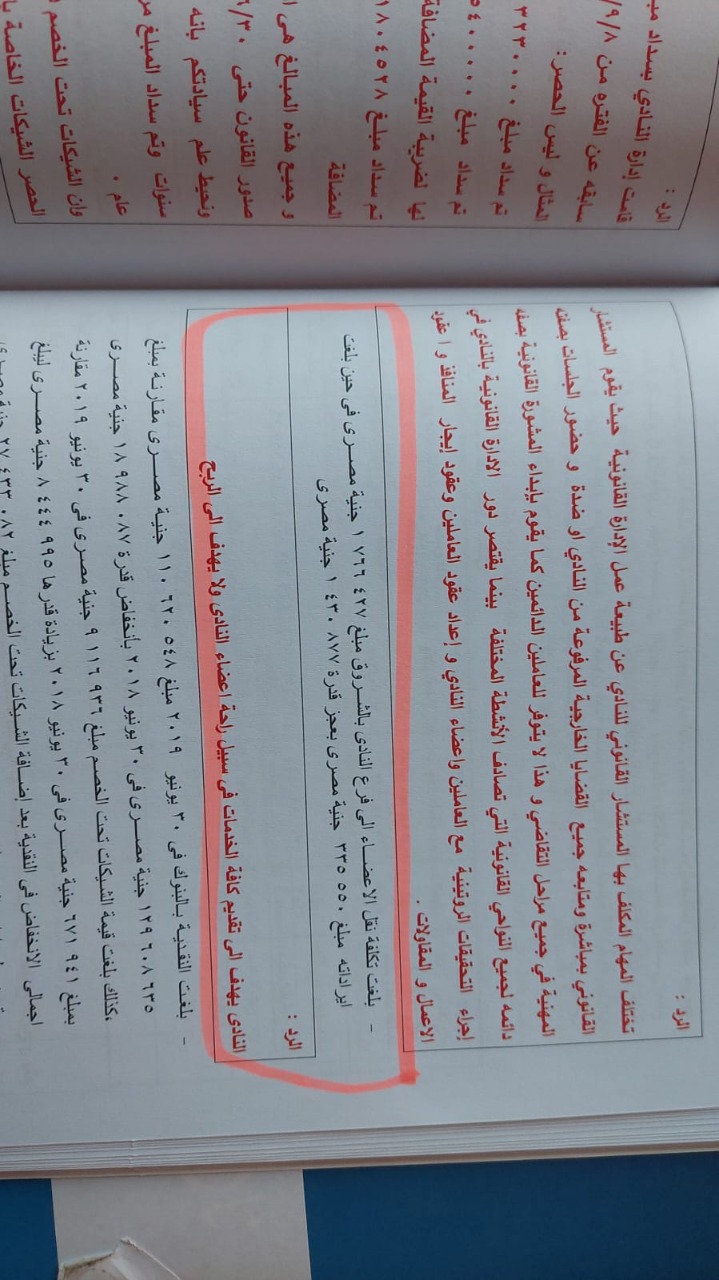 الرد :
قامت إدارة النادي بسداد
سابقه عن الفتره من ٩/٨/
المثال و ليس الحصر :
تم سداد مبلغ ٣٢٣٠٠٠٠
تم سداد مبلغ ٥٤٠٠٠٠٠
لها لضريبة القيمة المضافة
تم سداد مبلغ ١٨٠٤٥٢٨
المضافة
و جميع هذه المبالغ هى
صدور القانون حتى ٦/٣٠
ونحيط علم سيادتكم بانه
سنوات وتم سداد المبلغ
عام .
وان الشيكات تحت الخصم
الحصر الشيكات الخاصة
الرد :
تختلف المهام المكلف بها المستشار القانوني للنادي عن طبيعة عمل الإدارة القانونية حيث يقوم المستشار
القانوني بمباشرة ومتابعه جميع القضايا الخارجية المرفوعة من النادي او ضدة و حضور الجلسات بصفته
المهنية في جميع مراحل التقاضي و هذا لا يتوفر للعاملين الدائمين كما يقوم بإبداء المشورة القانونية بصفه
دائمه لجميع النواحي القانونية التي تصادف الأنشطة المختلفة بينما يقتصر دور الادارة القانونية بالنادي في
إجراء التحقيقات الروتينية مع العاملين واعضاء النادي و إعداد عقود العاملين وعقود إيجار المنافذ و عقود
الاعمال و المقاولات .
- بلغت تكلفة نقل الاعضاء الى فرع النادى بالشروق مبلغ ٤٢٧ ٧٦٦ ١ جنية مصرى فى حين بلغت
ايراداته مبلغ ٥٥٠ ٣٣٥ جنية مصرى بعجز قدرة ٨٧٧ ٤٣٠ ١ جنية مصرى
الرد :
النادى يهدف الى تقديم كافة الخدمات فى سبيل راحة اعضاء النادى ولا يهدف الى الربح
- بلغت النقدية بالبنوك فى ٣٠ يونيو ٢٠١٩ مبلغ ٥٤٨ ٦٢٠ ١١٠ جنية مصرى مقارنة بمبلغ
٦٣٥ ٦٠٨ ١٢٩ جنية مصرى فى ٣٠ يونيو ٢٠١٨ بانخفاض قدرة ٠٨٧ ٩٨٨ ١٨ جنية مصرى
،كذلك بلغت قيمة الشيكات تحت الخصم مبلغ ٩٣٦ ١١٦ ٩ جنية مصرى فى ٣٠ يونيو ٢٠١٩ مقارنة
بمبلغ ٩٤١ ٦٧١ جنية مصرى فى ٣٠ يونيو ٢٠١٨ بزيادة قدرها ٩٩٥ ٤٤٤ ٨ جنية مصرى ليبلغ
اجمالى الانخفاض فى النقدية بعد إضافة الشيكات تحت الخصم مبلغ ٠٨٢ ٤٣٣ ٢٧ جنية